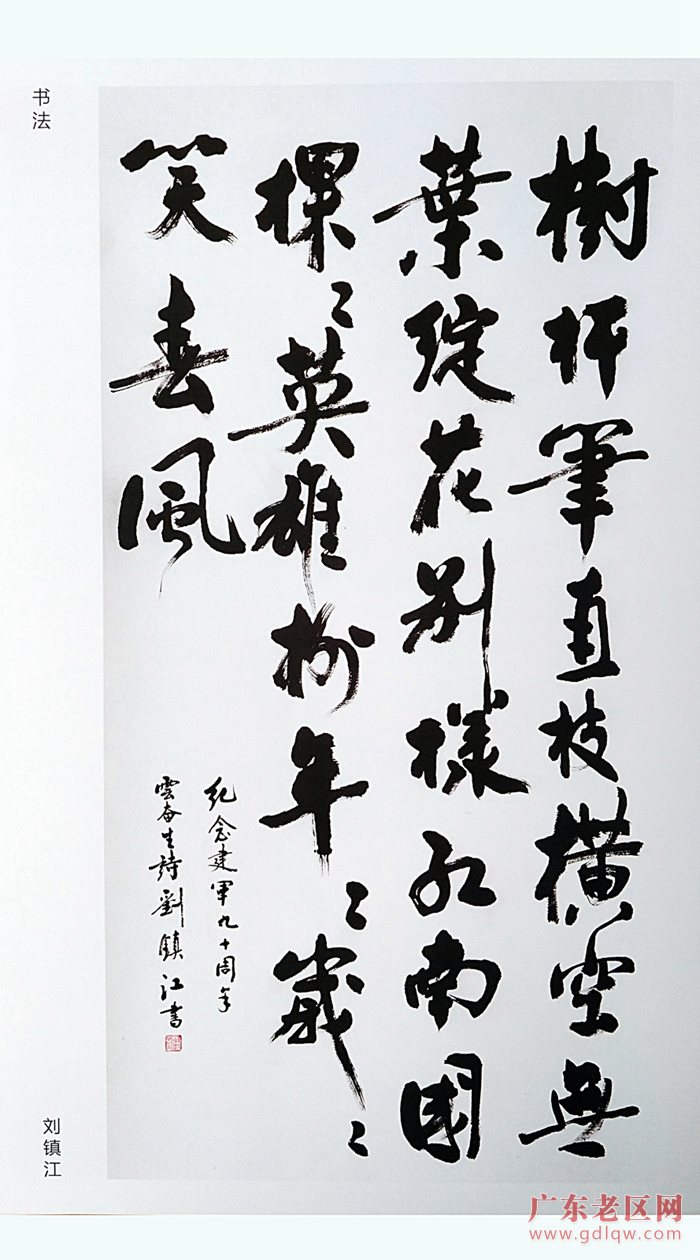 书法
樹杆筆直枝橫空無
葉綻花別樣紅南國
棵々英雄樹年々歲々
笑春風
紀念建軍九十周年
雲奋生詩劉鎮江書
刘镇江
广东老区网
www.gdlqw.com